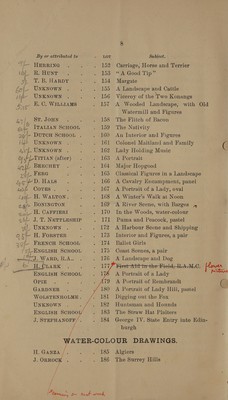 8
By or attributed to LOT Subject.
HERRING 152 Carriage, Horse and Terrier
R. HUNT 153 "A Good Tip"
T. B. HARDY 154 Margate
UNKNOWN 155 A Landscape and Cattle
UNKNOWN 156 Viceroy of the Two Kouangs
E. C. WILLIAMS 157 A Wooded Landscape, with Old
Watermill and Figures
ST. JOHN 158 The Flitch of Bacon
ITALIAN SCHOOL 159 The Nativity
DUTCH SCHOOL 160 An Interior and Figures
UNKNOWN 161 Colonel Maitland and Family
UNKNOWN 162 Lady Holding Music
TITIAN (after) 163 A Portrait
BEECHEY 164 Major Hopgood
FERG 165 Classical Figures in a Landscape
D. HALS 166 A Cavalry Encampment, panel
COTES 167 A Portrait of a Lady, oval
H. WALTON 168 A Winter's Walk at Noon
BONINGTON 169 A River Scene, with Barges
H. CAFFIERI 170 In the Woods, water-colour
J. T. NETTLESHIP 171 Puma and Peacock, pastel
UNKNOWN 172 A Harbour Scene and Shipping
H. FORSTER 173 Interior and Figures, a pair
FRENCH SCHOOL 174 Ballet Girls
ENGLISH SCHOOL 175 Coast Scenes, a pair
J. WARD, R.A. 176 A Landscape and Dog
H. CLARK 177 First Aid in the Field, R.A.M.C.
ENGLISH SCHOOL 178 A Portrait of a Lady
OPIE 179 A Portrait of Rembrandt
GARDNER 180 A Portrait of Lady Hill, pastel
WOLSTENHOLME 181 Digging out the Fox
UNKNOWN 182 Huntsman and Hounds
ENGLISH SCHOOL 183 The Straw Hat Plaiters
J. STEPHANOFF 184 George IV. State Entry into Edin-
burgh
WATER-COLOUR DRAWINGS.
H. GARZA 185 Algiers
J. ORROCK 186 The Surrey Hills